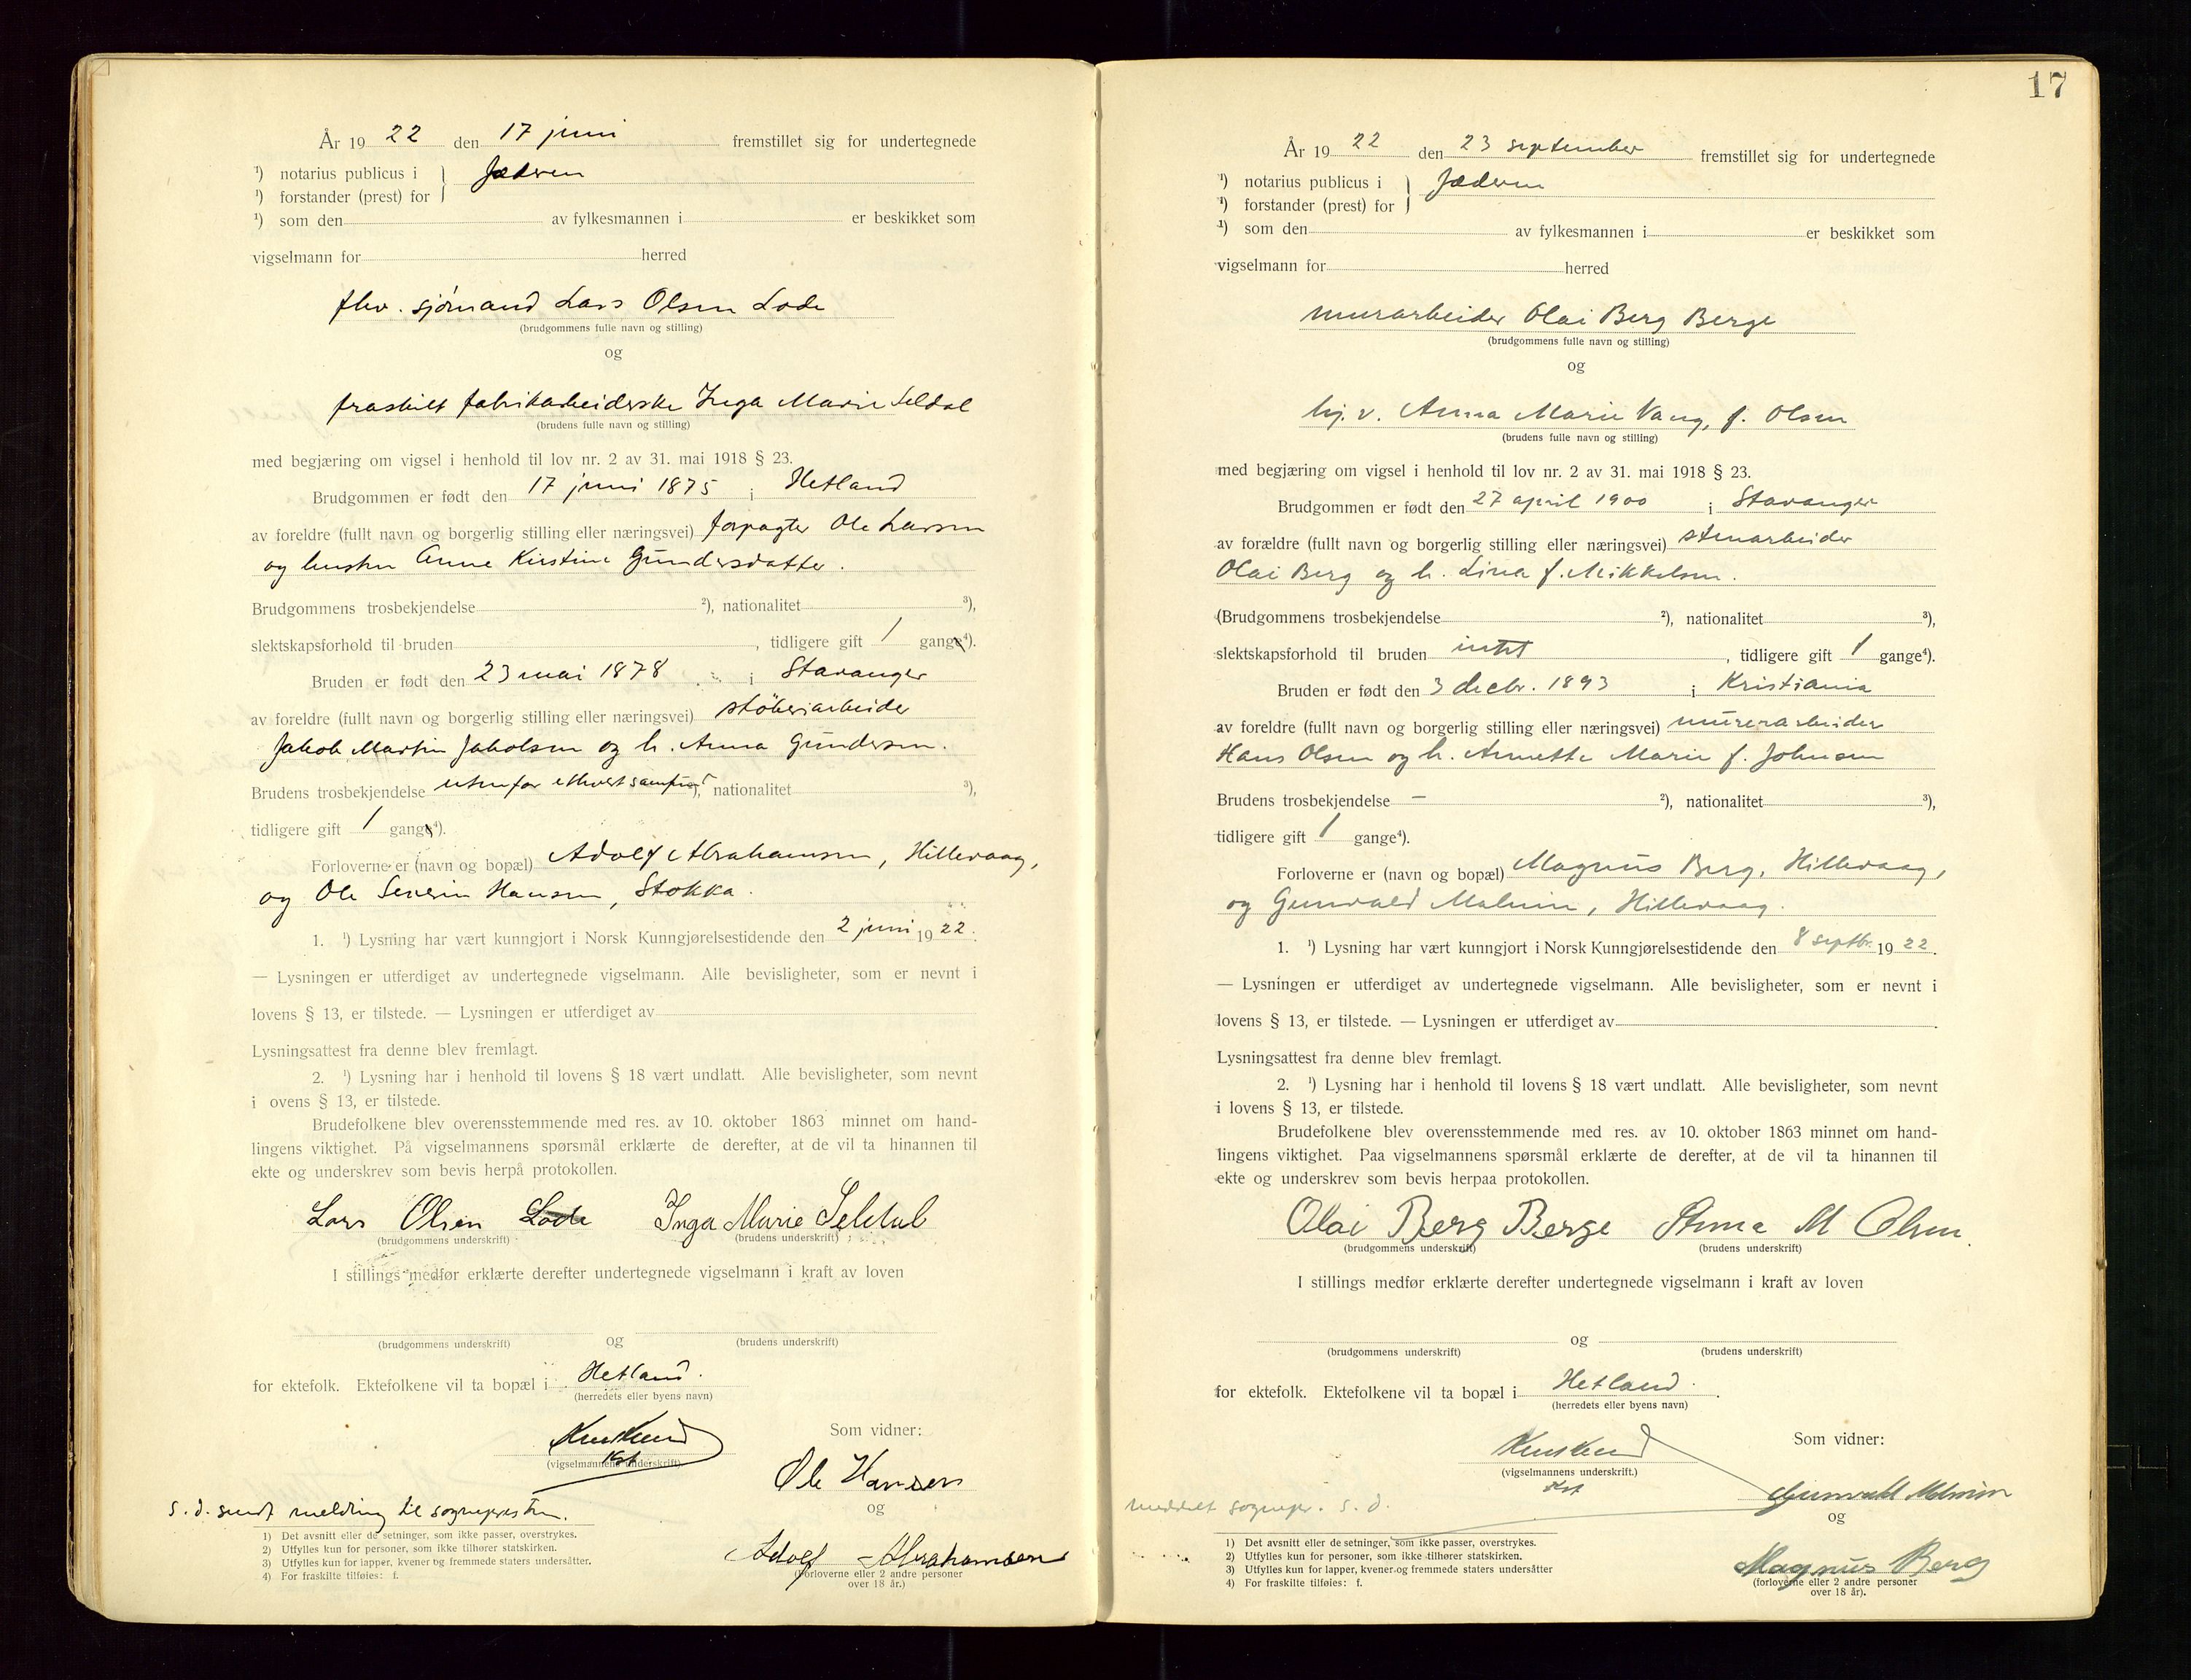 År 19 22 den 17 juni fremstillet sig for undertegnede
¹) notarius publicus i } Jæderen
¹) forstander (prest) for
¹) som den av fylkesmannen i er beskikket som
vigselmann for herred
fhv. sjömand Lars Olsen Lode
(brudgommens fulle navn og stilling)
og
fraskilt fabrikarbeiderske Inga Marie Seldal
(brudens fulle navn og stilling)
med begjæring om vigsel i henhold til lov nr. 2 av 31. mai 1918 § 23.
Brudgommen er født den 17 juni 1875 i Hetland
av foreldre (fullt navn og borgerlig stilling eller næringsvei) forpagter Ole Larsen
og hustru Anne Kirstine Gundersdatter.
Brudgommens trosbekjendelse ²), nationalitet ³),
slektskapsforhold til bruden , tidligere gift 1 gange⁴).
Bruden er født den 23 mai 1878 i Stavanger
av foreldre (fullt navn og borgerlig stilling eller næringsvei) støberiarbeider
Jakob Martin Jakobsen og h. Anna Gundersen.
Brudens trosbekjendelse utenfor ethvert samfund ²), nationalitet ³),
tidligere gift 1 gange⁴).
Forloverne er (navn og bopæl) Adolf Abrahamsen, Hillevaag,
og Ole Severin Hansen, Stokka.
1. ¹) Lysning har vært kunngjort i Norsk Kunngjørelsestidende den 2 juni 19 22.
— Lysningen er utferdiget av undertegnede vigselmann. Alle bevisligheter, som er nevnt i
lovens § 13, er tilstede. — Lysningen er utferdiget av
Lysningsattest fra denne blev fremlagt.
2. ¹) Lysning har i henhold til lovens § 18 vært undlatt. Alle bevisligheter, som nevnt
i ovens § 13, er tilstede.
Brudefolkene blev overensstemmende med res. av 10. oktober 1863 minnet om hand-
lingens viktighet. På vigselmannens spørsmål erklærte de derefter, at de vil ta hinannen til
ekte og underskrev som bevis herpå protokollen.
Lars Olsen Lode Inga Marie Seldal
(brudgommens underskrift) (brudens underskrift)
I stillings medfør erklærte derefter undertegnede vigselmann i kraft av loven
og
(brudgommens underskrift) (brudens underskrift)
for ektefolk. Ektefolkene vil ta bopæl i Hetland.
(herredets eller byens navn)
Som vidner:
(vigselmannens underskrift)
Kst
Ole Hansen
s. d. sendt melding til sognepresten.
og
Adolf Abrahamsen
(forloverne eller 2 andre personer
over 18 år.)
1) Det avsnitt eller de setninger, som ikke passer, overstrykes.
2) Utfylles kun for personer, som ikke tilhører statskirken.
3) Utfylles kun for lapper, kvener og fremmede staters undersåtter.
4) For fraskilte tilføies: f.
17
År 19 22 den 23 september fremstillet sig for undertegnede
¹) notarius publicus i } Jæderen
¹) forstander (prest) for
¹) som den av fylkesmannen i er beskikket som
vigselmann for herred
murarbeider Olai Berg Berge
(brudgommens fulle navn og stilling)
og
hj. v. Anna Marie Vang, f. Olsen
(brudens fulle navn og stilling)
med begjæring om vigsel i henhold til lov nr. 2 av 31. mai 1918 § 23.
Brudgommen er født den 27 april 1900 i Stavanger
av forældre (fullt navn og borgerlig stilling eller næringsvei) stenarbeider
Olai Berg og h. Lina f. Mikkelsen.
(Brudgommens trosbekjendelse ²), nationalitet ³),
slektskapsforhold til bruden intet , tidligere gift 1 gange⁴).
Bruden er født den 3 decbr. 1893 i Kristiania
av foreldre (fullt navn og borgerlig stilling eller næringsvei) murerarbeider
Hans Olsen og h. Annette Marie f. Johnsen
Brudens trosbekjendelse — ²), nationalitet ³),
tidligere gift 1 gange⁴).
Forloverne er (navn og bopæl) Magnus Berg, Hillevaag,
og Gunvald Malmin, Hillevaag.
1. ¹) Lysning har vært kunngjort i Norsk Kunngjørelsestidende den 8 septbr. 19 22.
— Lysningen er utferdiget av undertegnede vigselmann. Alle bevisligheter, som er nevnt i
lovens § 13, er tilstede. — Lysningen er utferdiget av
Lysningsattest fra denne blev fremlagt.
2. ¹) Lysning har i henhold til lovens § 18 vært undlatt. Alle bevisligheter, som nevnt
i lovens § 13, er tilstede.
Brudefolkene blev overensstemmende med res. av 10. oktober 1863 minnet om hand-
lingens viktighet. Paa vigselmannens spørsmål erklærte de derefter, at de vil ta hinannen til
ekte og underskrev som bevis herpaa protokollen.
Olai Berg Berge Anna M Olsen.
(brudgommens underskrift) (brudens underskrift)
I stillings medfør erklærte derefter undertegnede vigselmann i kraft av loven
og
(brudgommens underskrift) (brudens underskrift)
for ektefolk. Ektefolkene vil ta bopæl i Hetland.
(herredets eller byens navn)
Som vidner:
(vigselmannens underskrift.)
Kst
Gunvald Malmin
meddelt sognepr. s. d.
og
Magnus Berg
(forloverne eller 2 andre personer
over 18 år).
1) Det avsnitt eller de setninger, som ikke passer, overstrykes.
2) Utfylles kun for personer, som ikke tilhører statskirken.
3) Utfylles kun for lapper, kvener og fremmede staters undersåtter
4) For fraskilte tilføies: f.